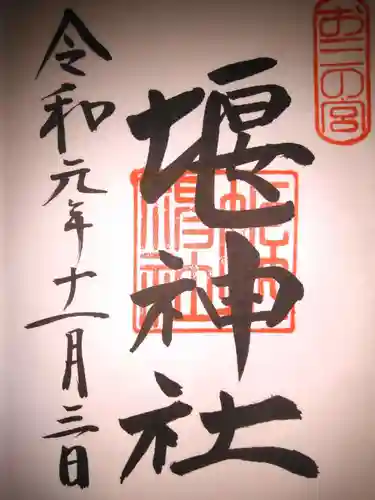 おこの宮
堰神社
令和元年十一月三日